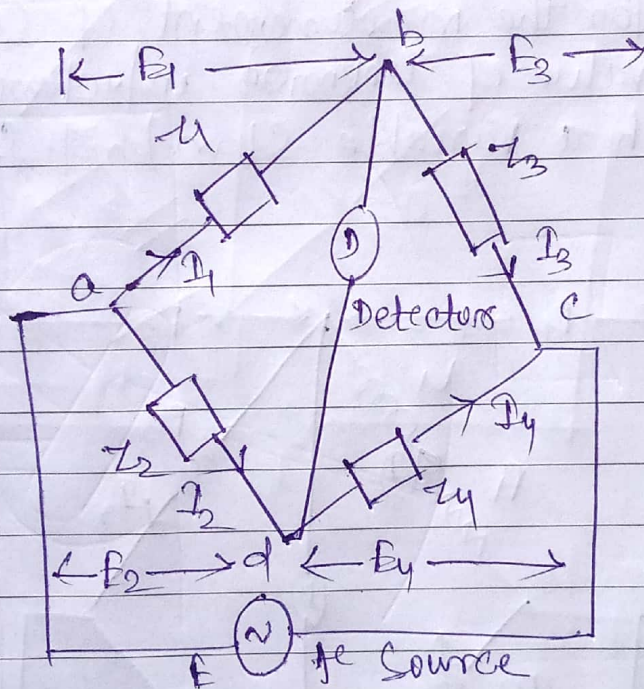 b
E1
E3
Z1
Z3
I1
D
I3
a
Detectors
C
Z2
I4
I2
Z4
E2
d
E4
E
Ac Source